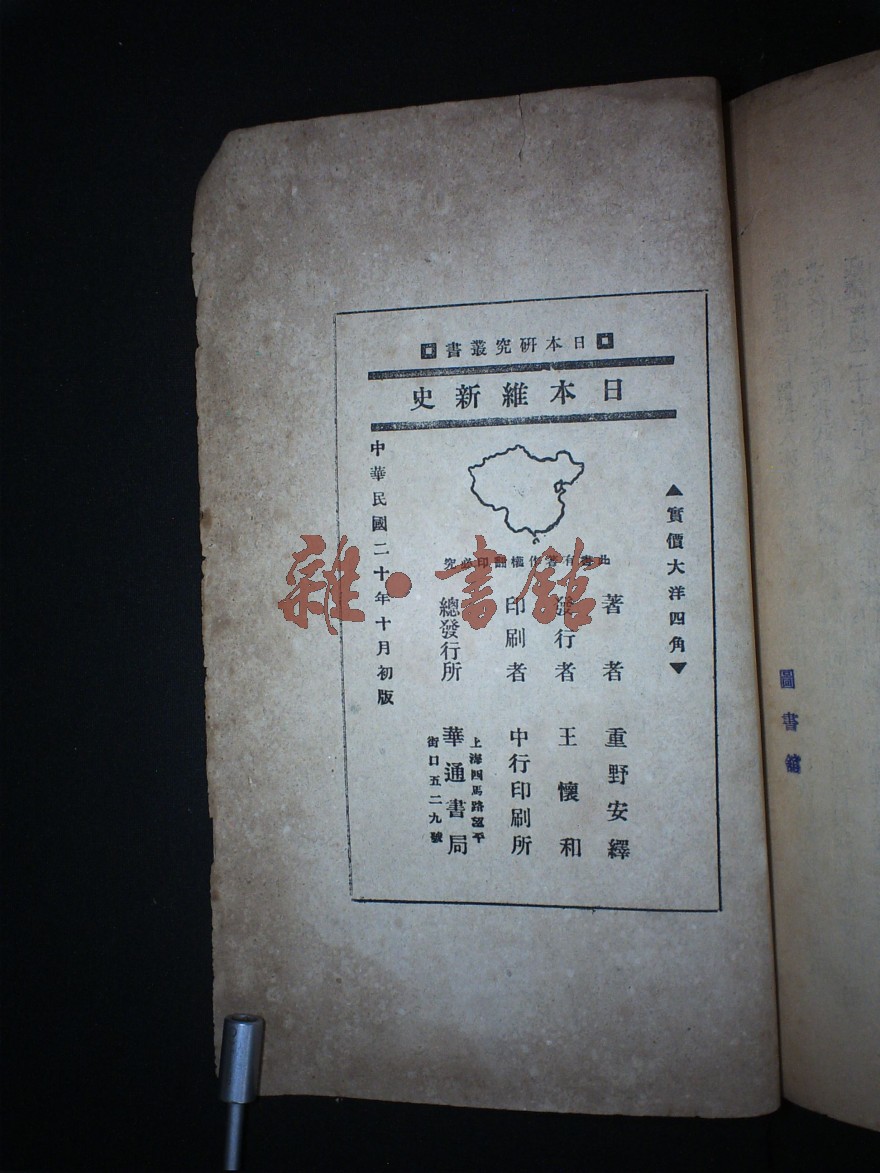 日本研究叢書
日本維新史
▲實價大洋四角▼
此書有著作權翻印必究
著者 重野安繹
發行者 王懷和
印刷者 中行印刷所
總發行所 華通書局
上海四馬路望平
街口五二九號
中華民國二十年十月初版
雜·書館
圖書館